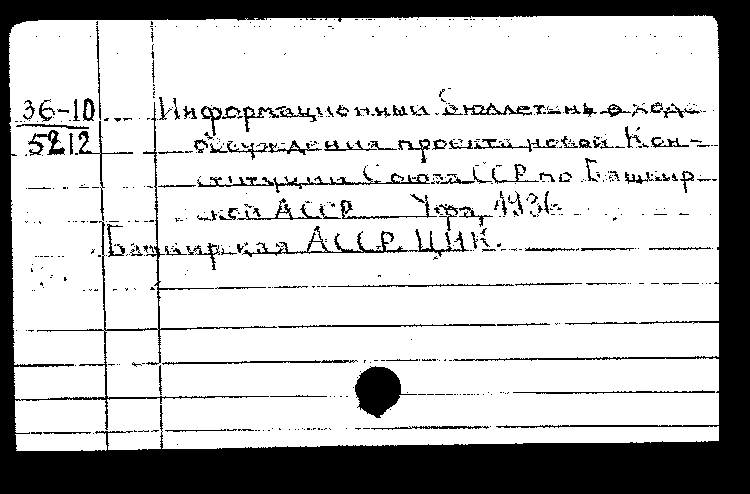 36-10 Информационный бюллетень о ходе
5212 обсуждения проекта новой Кон-
ституции Союза ССР по Башкир-
ской АССР Уфа, 1936
Башкирская АССР. ЦИК.